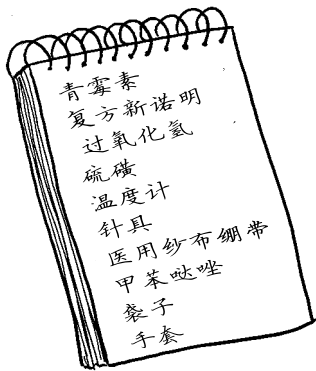 青霉素
复方新诺明
过氧化氢
硫磺
温度计
针具
医用纱布绷带
甲苯哒唑
袋子
手套